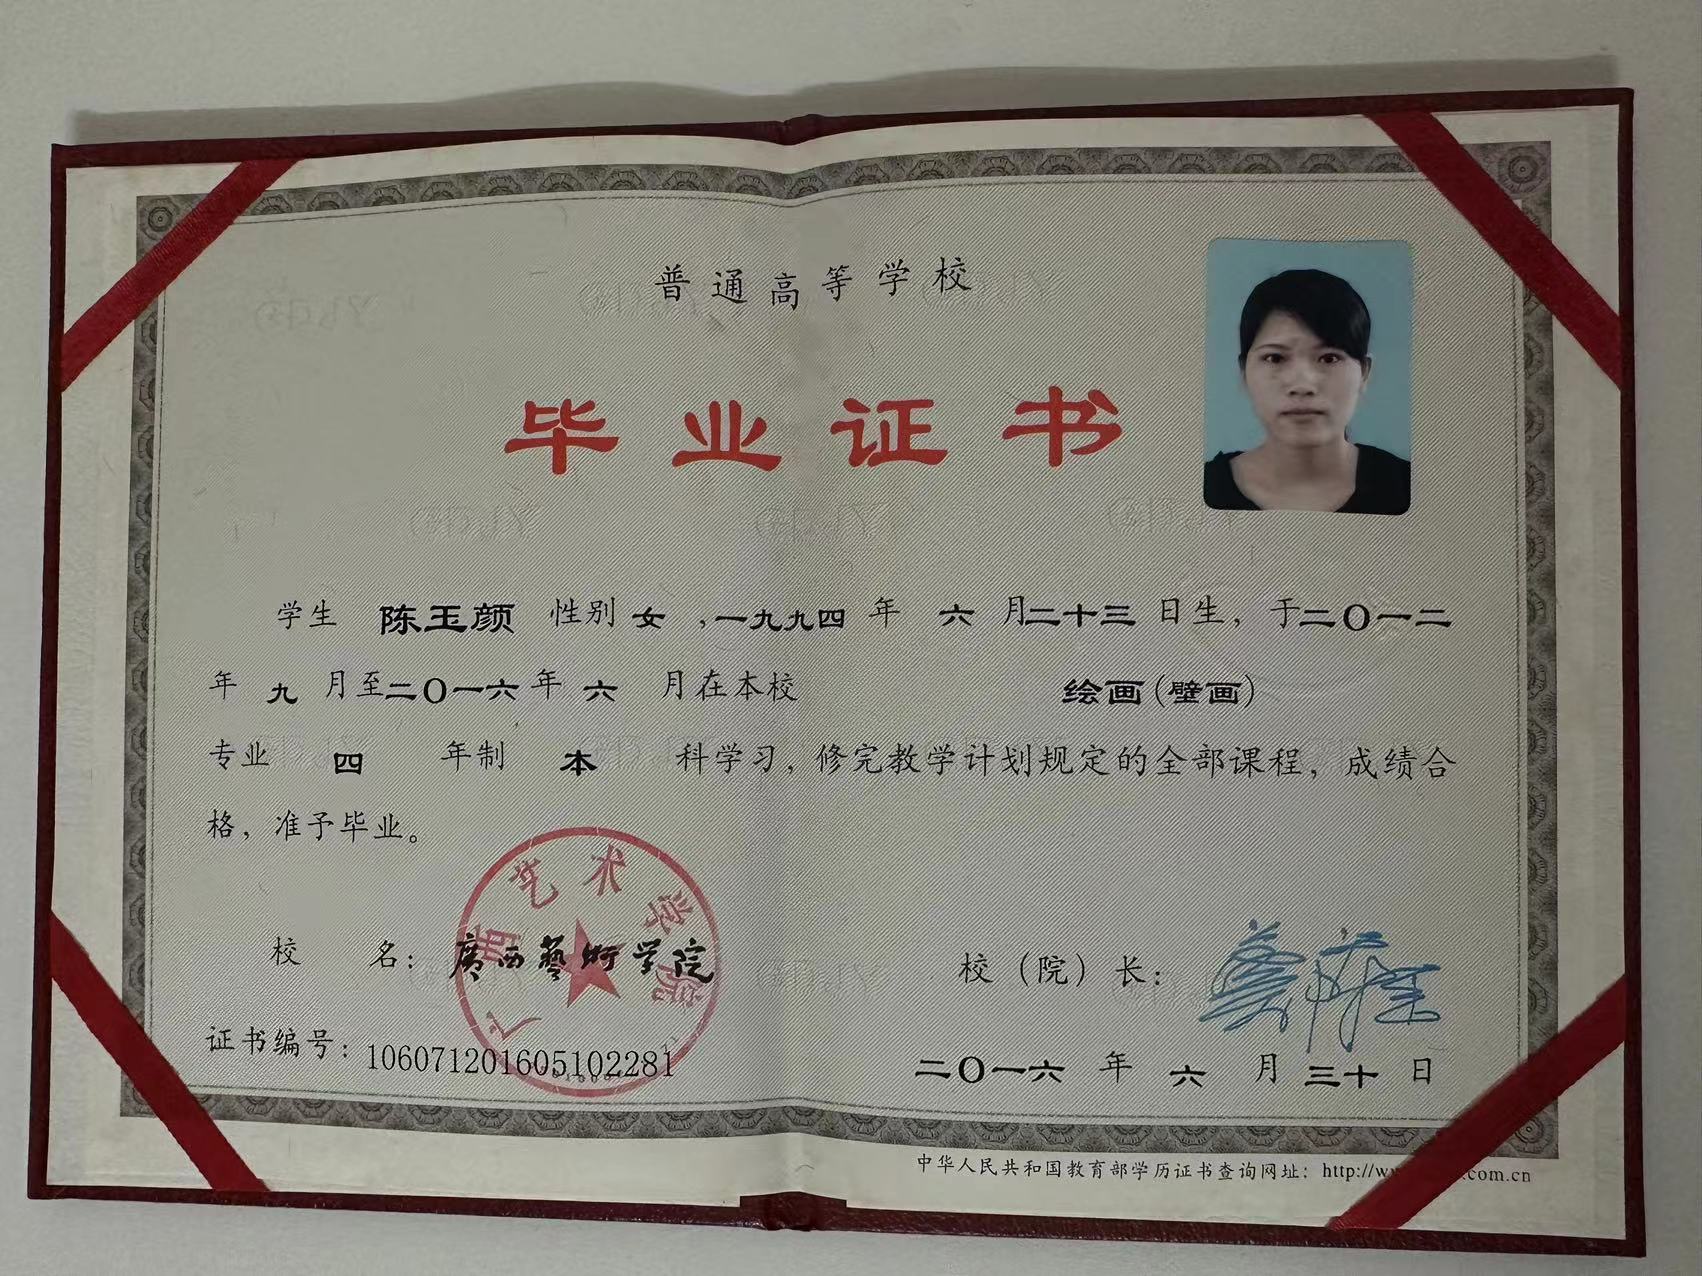 普通高等学校
毕业证书
学生 陈玉颜 性别 女 ,一九九四 年 六 月二十三 日生，于二〇一二
年 九 月至二〇一六 年 六 月在本校 绘画(壁画)
专业 四 年制 本 科学习，修完教学计划规定的全部课程，成绩合
格，准予毕业。
广西艺术学院
校 名：廣西藝術学院
校（院）长：
证书编号：106071201605102281
二〇一六 年 六 月 三十 日
中华人民共和国教育部学历证书查询网址：http://w .com.cn